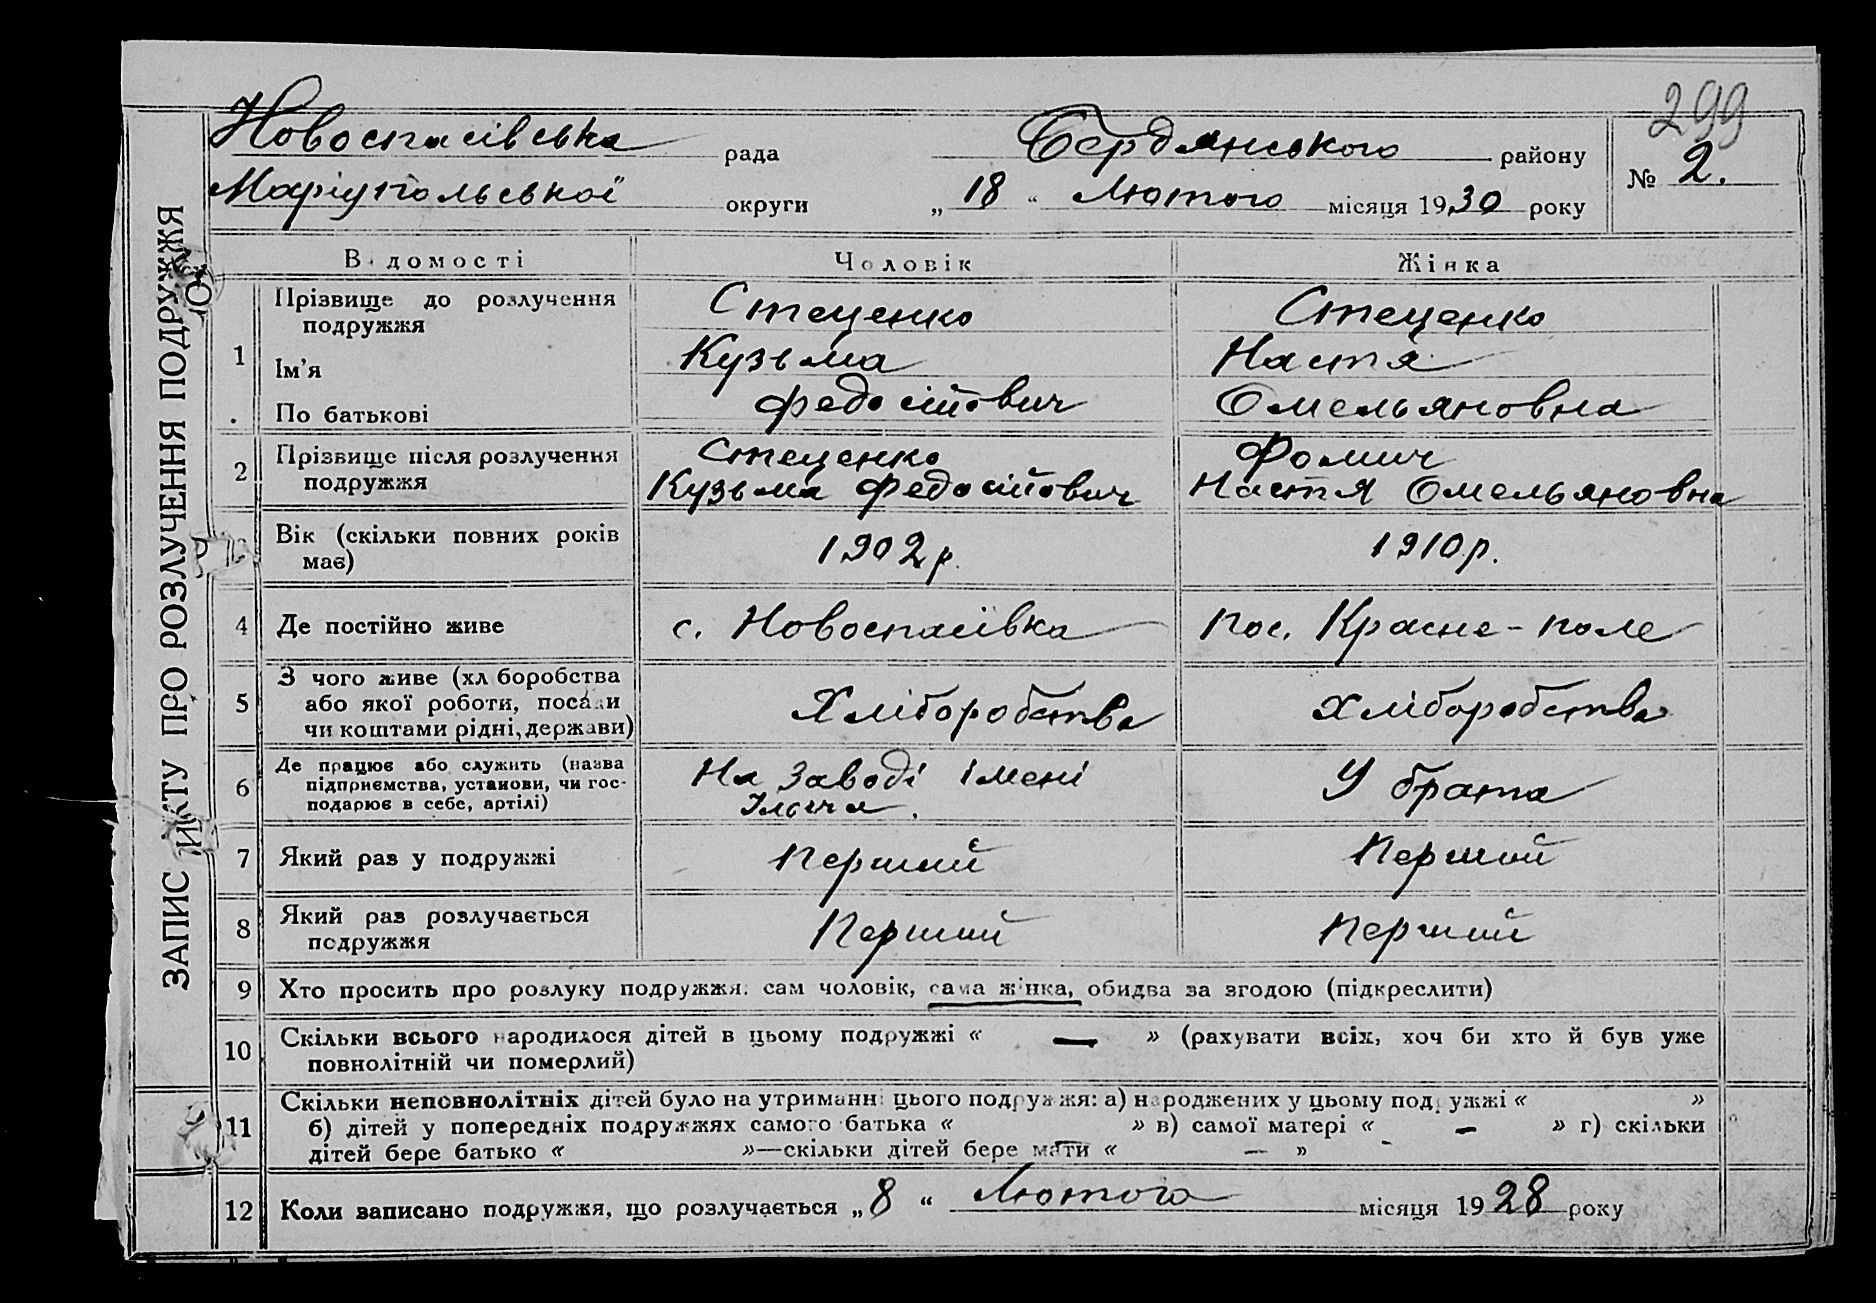 299
Новоспасівська рада Бердянського району
№ 2.
Маріупольської округи „ 18 “ Лютого місяця 1930 року
ЗАПИС АКТУ ПРО РОЗЛУЧЕННЯ ПОДРУЖЖЯ
Відомості Чоловік Жінка
1 Прізвище до розлучення подружжя Стеценко Стеценко
Ім'я Кузьма Настя
По батькові Федосійович Омельяновна
2 Прізвище після розлучення Стеценко Фомич
подружжя Кузьма Федосійович Настя Омельяновна
Вік (скільки повних років
має) 1902 р. 1910 р.
4 Де постійно живе с. Новоспасівка пос. Красне-поле
З чого живе (хліборобства
5 або якої роботи, посади Хліборобства Хліборобства
чи коштами рідні, держави)
Де працює або служить (назва На заводі імені
6 підприємства, установи, чи гос- У брата
подарює в себе, артілі) Ільіча.
7 Який раз у подружжі Перший Перший
8 Який раз розлучається Перший Перший
подружжя
9 Хто просить про розлуку подружжя: сам чоловік, сама жінка, обидва за згодою (підкреслити)
10 Скільки всього народилося дітей в цьому подружжі « — » (рахувати всіх, хоч би хто й був уже
повнолітній чи померлий)
Скільки неповнолітніх дітей було на утриманні цього подружжя: а) народжених у цьому подружжі « »
11 б) дітей у попередніх подружжях самого батька « » в) самої матері « — » г) скільки
дітей бере батько « »—скільки дітей бере мати « — »
12 Коли записано подружжя, що розлучається „ 8 “ Лютого місяця 1928 року